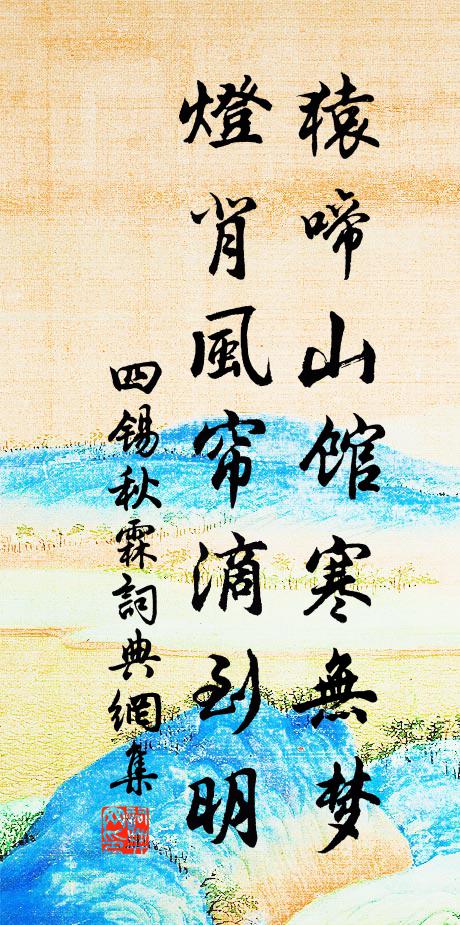 猿啼山馆寒無梦
燈背風帘滴到明
四锡秋霖詞典網集